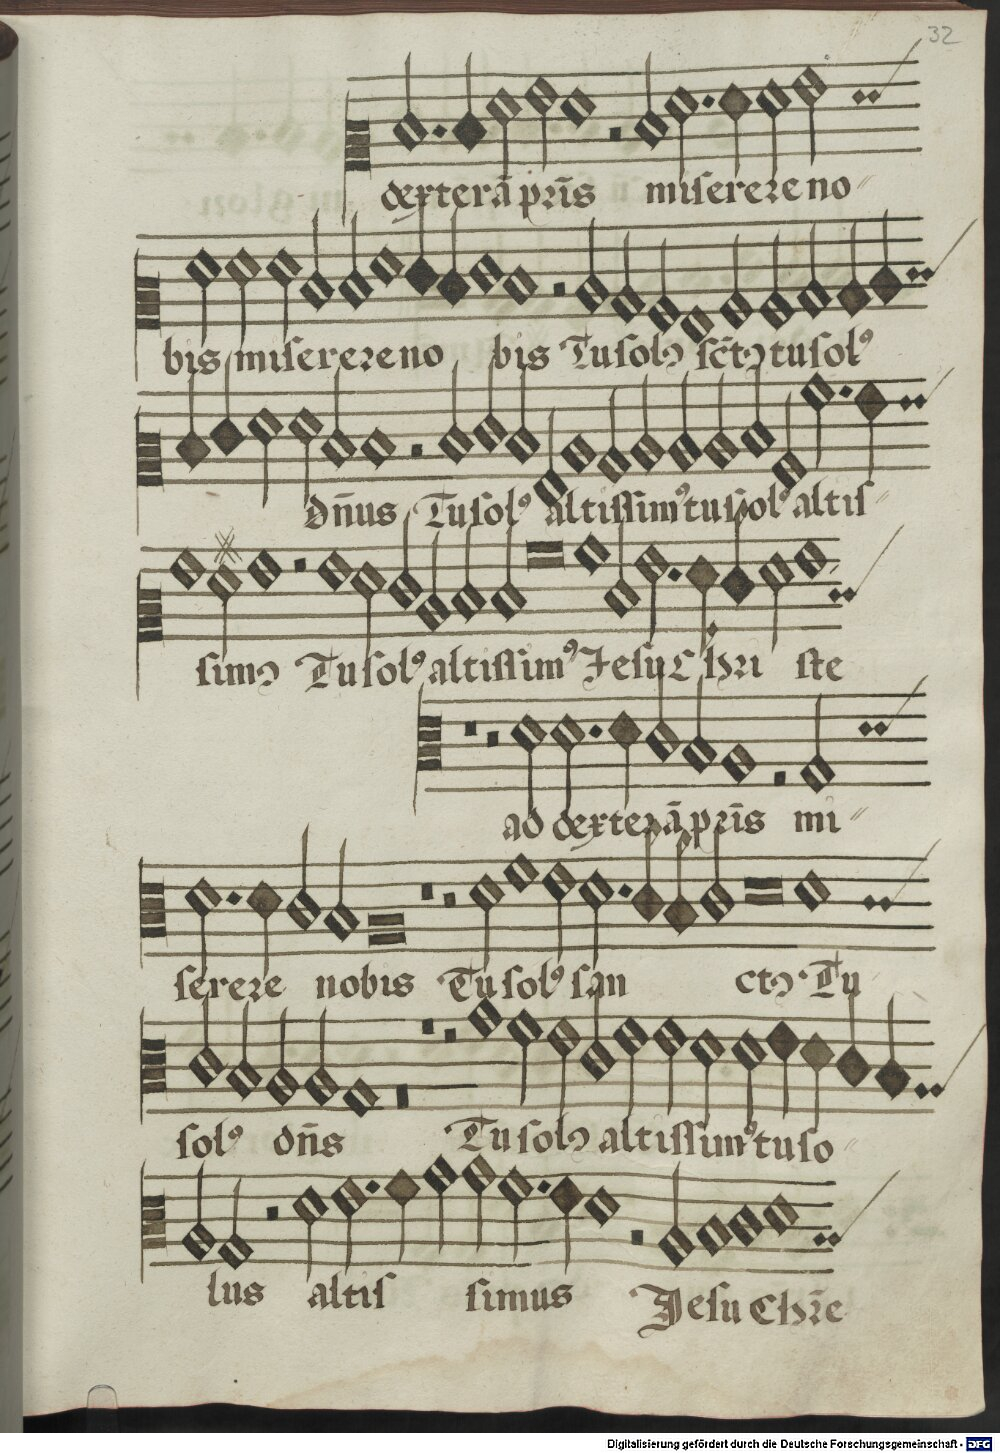 32
dexterā prīs miserere no
bis miserere no bis Tu solꝰ sc̄tꝰ tu solꝰ
dn̄us Tu solꝰ altissimꝰ tu solꝰ altis
simꝰ Tu solꝰ altissimꝰ Jesu Chri ste
ad dexterā prīs mi
serere nobis Tu solꝰ san ctꝰ Tu
solꝰ dn̄s Tu solꝰ altissimꝰ tu so
lus altis simus Jesu Chr̄e
Digitalisierung gefördert durch die Deutsche Forschungsgemeinschaft - DFG